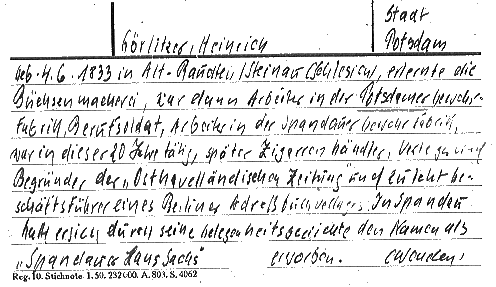 Stadt
Görlitzer, Heinrich Potsdam
geb. 4.6. 1833 in Alt-Raudten, /Steinau/Schlesien/, erlernte die
Büchsenmacherei, war dann Arbeiter in der Potsdamer Gewehr-
fabrik, Berufsoldat, Arbeiter in der Spandauer Gewehrfabrik,
war in dieser 20 Jahre tätig, später Zigarrenhändler, Verleger und
Begründer der „Osthavelländischen Zeitung" und zuletzt Ge-
schäftsführer eines Berliner Adreßbuchverlages. In Spandau
hatte er sich durch seine Gelegenheitsgedichte den Namen als
„Spandauer Hans Sachs" erworben. (wenden)
Reg. 10. Stichnote. 1. 50. 232000. A. 803. S. 4062